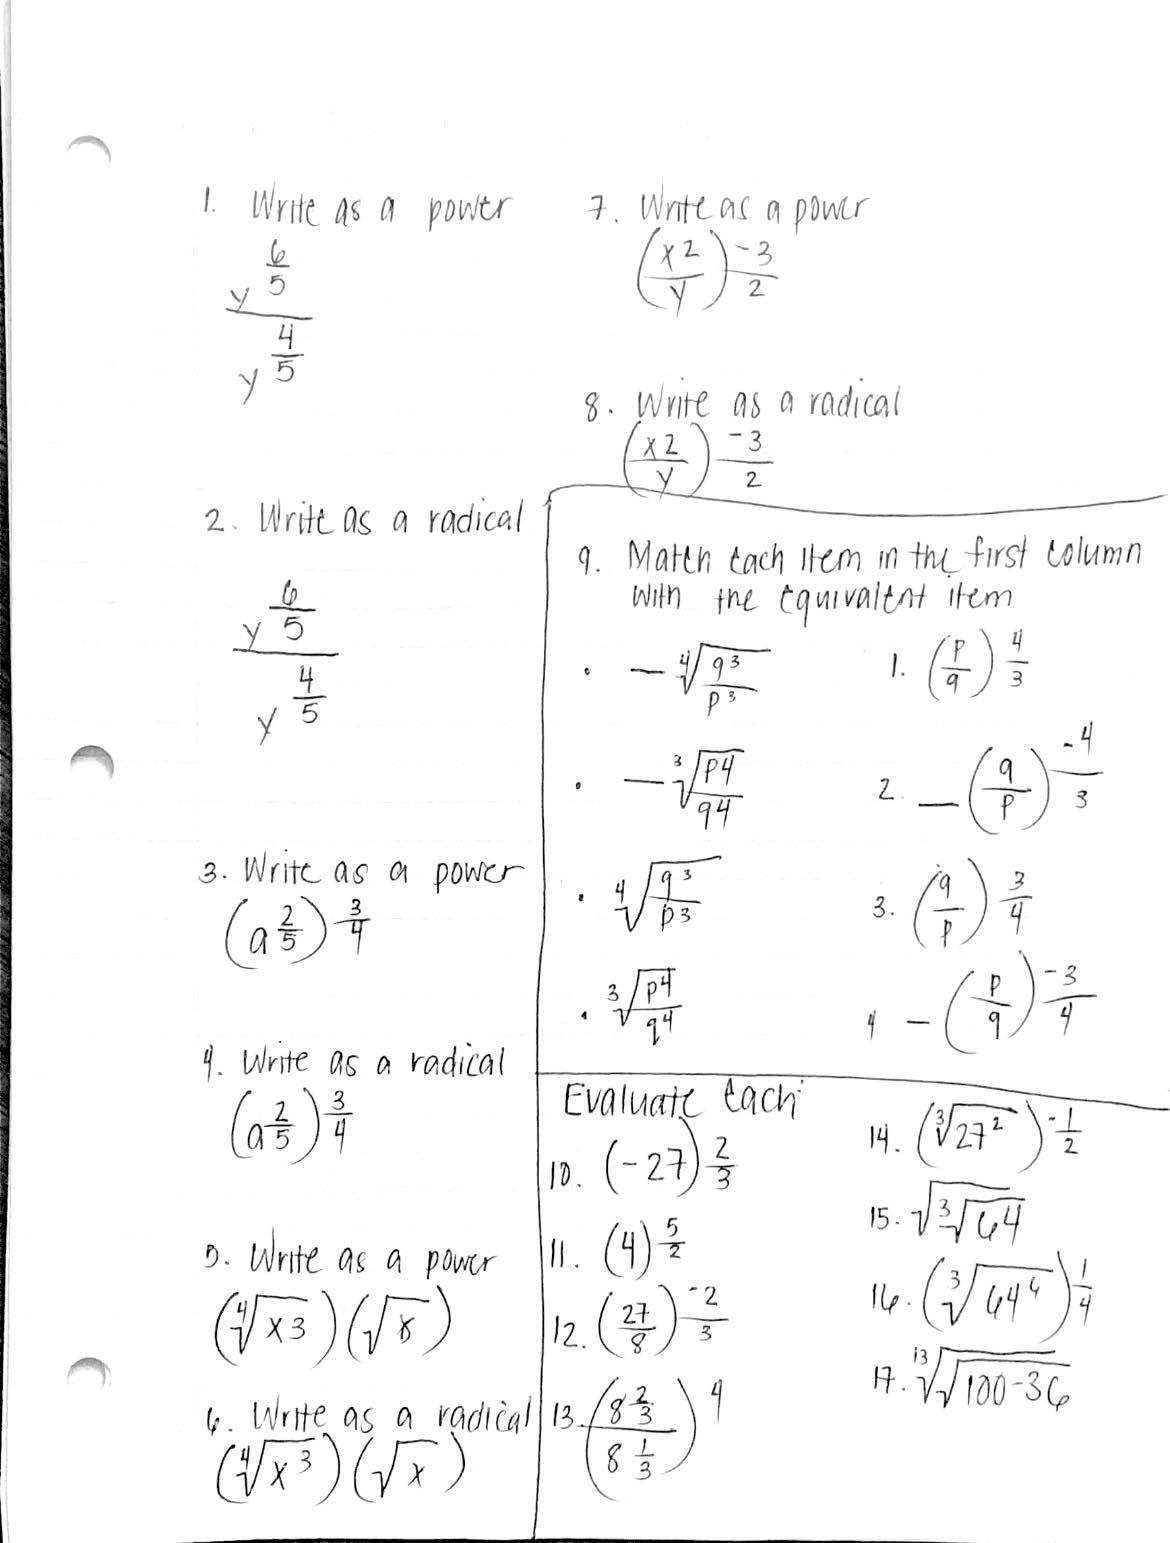 1. Write as a power
y^(6/5) / y^(4/5)
2. Write as a radical
y^(6/5) / y^(4/5)
3. Write as a power
(a 2/5) 3/4
4. Write as a radical
(a 2/5) 3/4
5. Write as a power
(∜x3)(√x)
6. Write as a radical
(∜x³)(√x)
7. Write as a power
(x2/y) -3/2
8. Write as a radical
(x2/y) -3/2
9. Match each item in the first column
with the equivalent item
• -∜(q³/p³) 1. (p/q) 4/3
• -∛(p4/q4) 2. -(q/p)^(-4/3)
• ∜(q³/p3) 3. (q/p) 3/4
• ∛(p⁴/q⁴) 4 -(p/q)^(-3/4)
Evaluate Each:
10. (-27) 2/3
11. (4) 5/2
12. (27/8)^(-2/3)
13. (8 2/3 / 8 1/3)^4
14. (∛27²)^(-1/2)
15. √∛64
16. (∛64⁶) 1/4
17. ¹³√√100-36